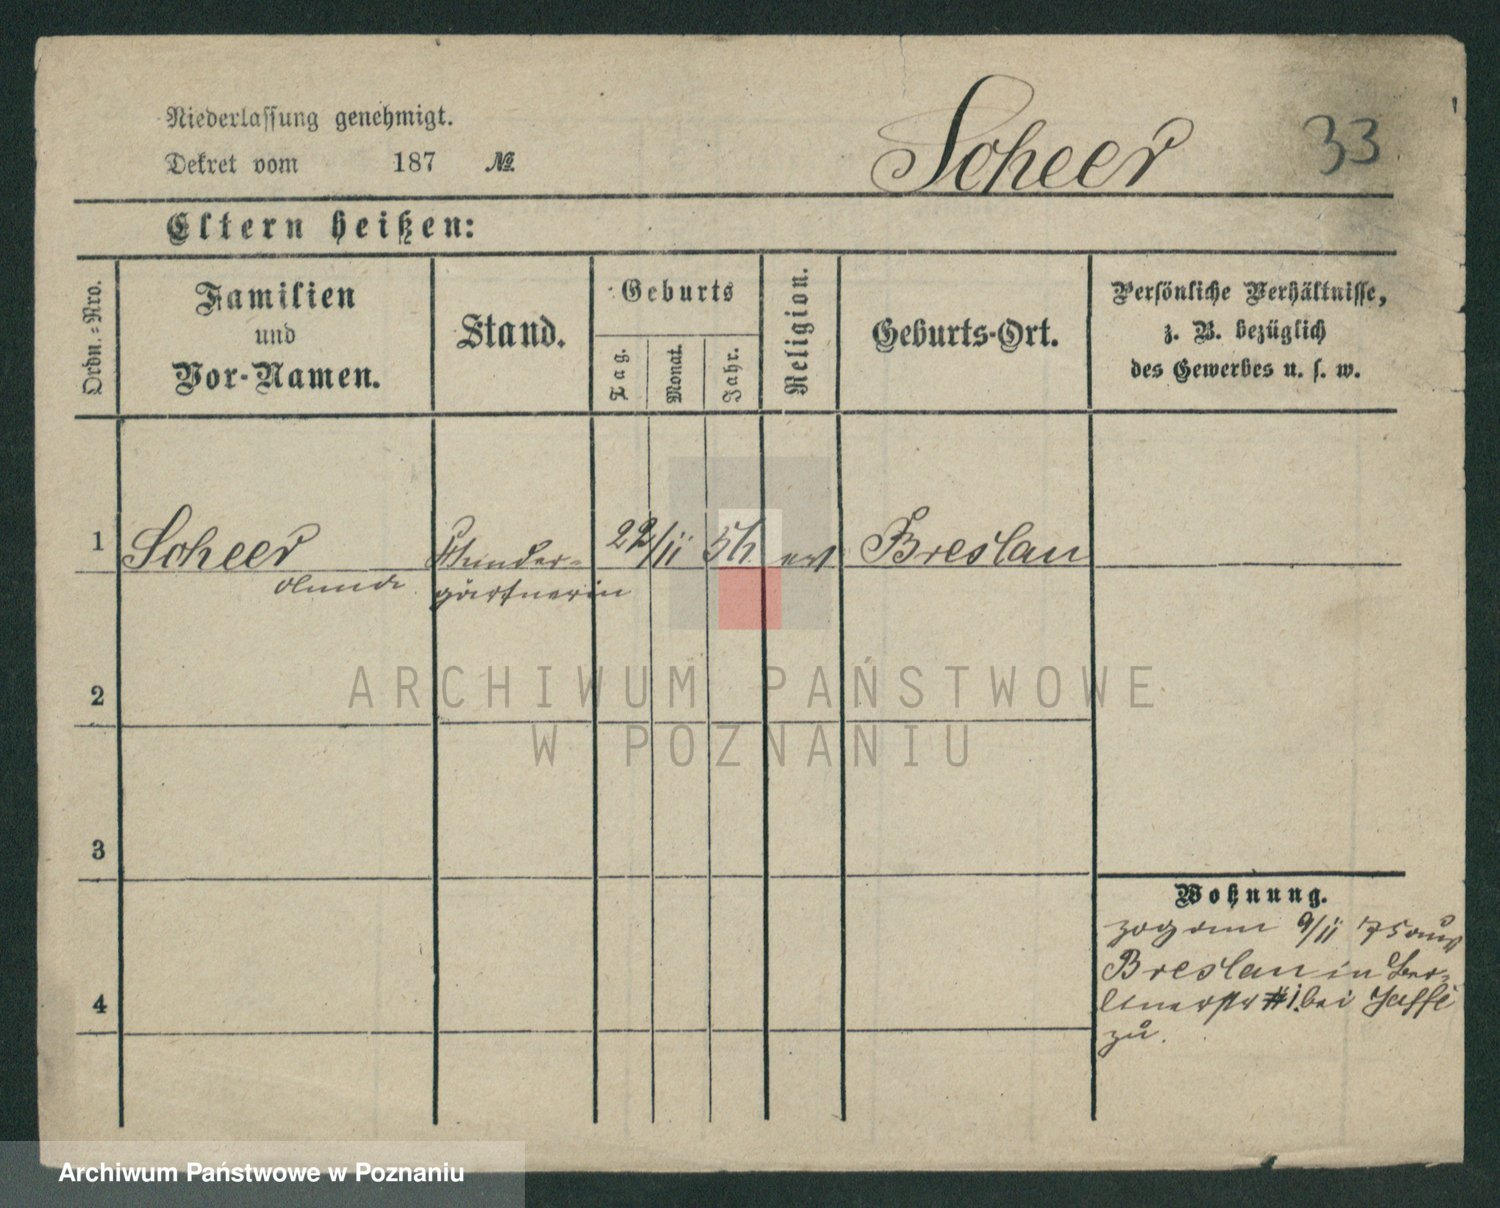 Niederlassung genehmigt.
Dekret vom 187 №
Scheer
33
Eltern heißen:
Ordn.=Nro.
Familien
und
Vor-Namen.
Stand.
Geburts
Tag.
Monat.
Jahr.
Religion.
Geburts-Ort.
Persönliche Verhältnisse,
z. B. bezüglich
des Gewerbes u. s. w.
1
Scheer
22/11
Breslau
gärtnerin
2
3
4
Wohnung.
zog am 9/11 75 aus
Breslau in Ber-
linerstr #1. bei Jaffé
zu.
ARCHIWUM PAŃSTWOWE
W POZNANIU
Archiwum Państwowe w Poznaniu